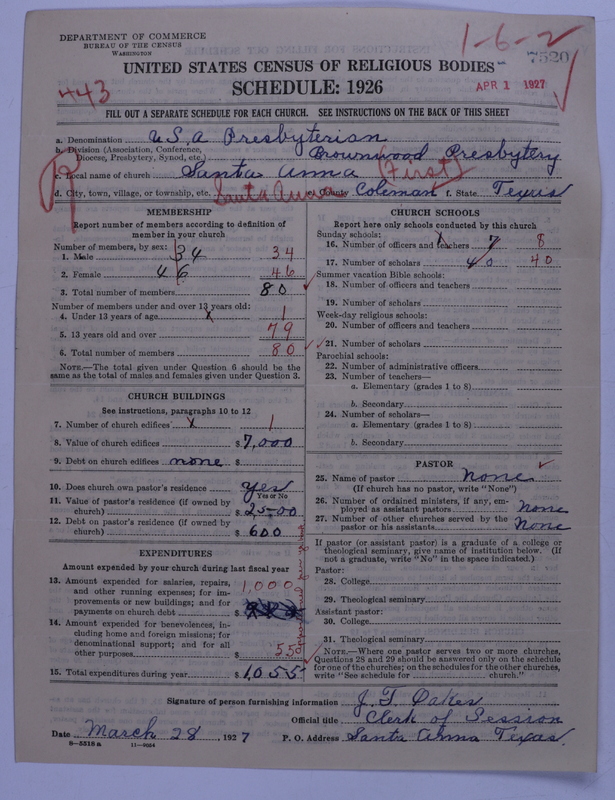 DEPARTMENT OF COMMERCE
BUREAU OF THE CENSUS
WASHINGTON
1-6-2
7520
UNITED STATES CENSUS OF RELIGIOUS BODIES
SCHEDULE: 1926
APR 1 1927
443
FILL OUT A SEPARATE SCHEDULE FOR EACH CHURCH. SEE INSTRUCTIONS ON THE BACK OF THIS SHEET
a. Denomination U.S.A Presbyterian
b. Division (Association, Conference, Diocese, Presbytery, Synod, etc.) Brownwood Presbytery
c. Local name of church Santa Anna (First)
d. City, town, village, or township, etc. Santa Anna County Coleman f. State Texas
MEMBERSHIP
Report number of members according to definition of member in your church
Number of members, by sex:
1. Male 34 34
2. Female 46 46
3. Total number of members 80
Number of members under and over 13 years old:
4. Under 13 years of age 1
5. 13 years old and over 79
6. Total number of members 80
NOTE.—The total given under Question 6 should be the same as the total of males and females given under Question 3.
CHURCH BUILDINGS
See instructions, paragraphs 10 to 12
7. Number of church edifices 1
8. Value of church edifices $ 7,000
9. Debt on church edifices none $
10. Does church own pastor's residence yes
Yes or No
11. Value of pastor's residence (if owned by church) $ 2500
12. Debt on pastor's residence (if owned by church) $ 600
EXPENDITURES
Amount expended by your church during last fiscal year
13. Amount expended for salaries, repairs, and other running expenses; for improvements or new buildings; and for payments on church debt $ 1,000
14. Amount expended for benevolences, including home and foreign missions; for denominational support; and for all other purposes $ 55
15. Total expenditures during year $ 1055
CHURCH SCHOOLS
Report here only schools conducted by this church
Sunday schools:
16. Number of officers and teachers 7 8
17. Number of scholars 40 40
Summer vacation Bible schools:
18. Number of officers and teachers
19. Number of scholars
Week-day religious schools:
20. Number of officers and teachers
21. Number of scholars
Parochial schools:
22. Number of administrative officers
23. Number of teachers—
a. Elementary (grades 1 to 8)
b. Secondary
24. Number of scholars—
a. Elementary (grades 1 to 8)
b. Secondary
PASTOR
25. Name of pastor none
(If church has no pastor, write "None")
26. Number of ordained ministers, if any, employed as assistant pastors None
27. Number of other churches served by the pastor or his assistants None
If pastor (or assistant pastor) is a graduate of a college or theological seminary, give name of institution below. (If not a graduate, write "No" in the space indicated.)
Pastor:
28. College
29. Theological seminary
Assistant pastor:
30. College
31. Theological seminary
NOTE.—Where one pastor serves two or more churches, Questions 28 and 29 should be answered only on the schedule for one of the churches; on the schedules for the other churches, write "See schedule for church."
Signature of person furnishing information J. T. Oakes
Official title Clerk of Session
Date March 28, 1927 P. O. Address Santa Anna Texas.
8-5518 a 11-9054